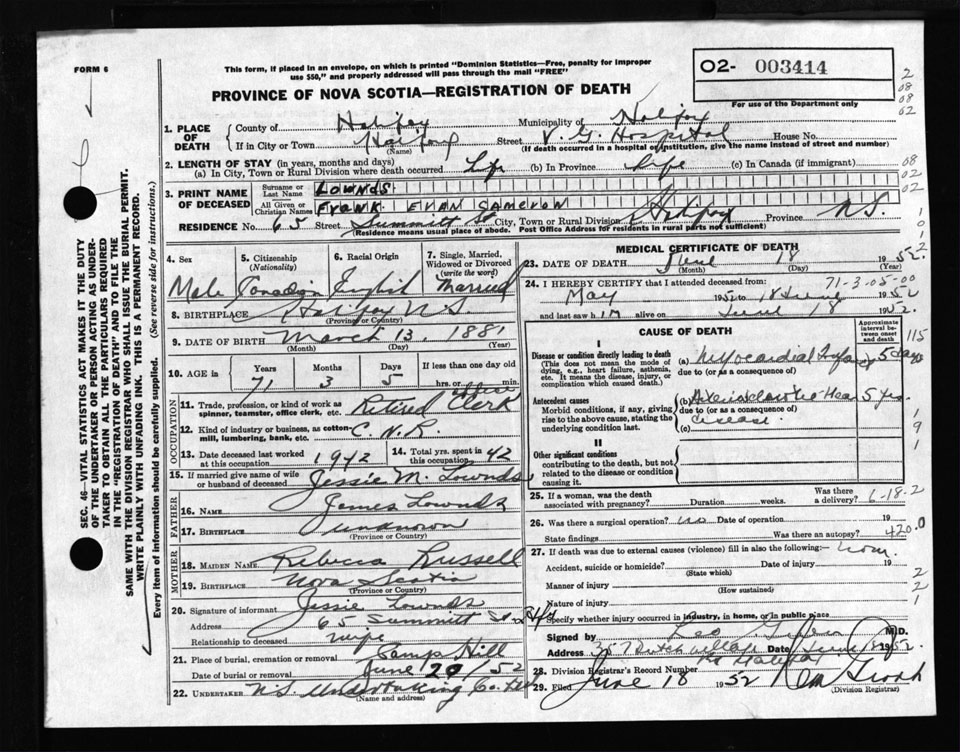 FORM 6
This form, if placed in an envelope, on which is printed "Dominion Statistics—Free, penalty for improper
use $50," and properly addressed will pass through the mail "FREE"
PROVINCE OF NOVA SCOTIA—REGISTRATION OF DEATH
O2- 003414
For use of the Department only
2
08
08
02
1. PLACE OF DEATH
County of Halifax Municipality of Halifax
If in City or Town Halifax Street V. G. Hospital House No.
(Name) (If death occurred in a hospital or institution, give the name instead of street and number)
2. LENGTH OF STAY (in years, months and days)
(a) In City, Town or Rural Division where death occurred Life (b) In Province Life (c) In Canada (if immigrant)
08
02
02
3. PRINT NAME OF DECEASED
Surname or Last Name LOWNDS
All Given or Christian Names FRANK EVAN CAMERON
RESIDENCE No. 65 Street Summitt St City, Town or Rural Division Halifax Province N.S.
(Residence means usual place of abode. Post Office Address for residents in rural parts not sufficient)
1
0
1
2
SEC. 46—VITAL STATISTICS ACT MAKES IT THE DUTY
OF THE UNDERTAKER OR PERSON ACTING AS UNDER-
TAKER TO OBTAIN ALL THE PARTICULARS REQUIRED
IN THE "REGISTRATION OF DEATH" AND TO FILE THE
SAME WITH THE DIVISION REGISTRAR WHO SHALL ISSUE THE BURIAL PERMIT.
WRITE PLAINLY WITH UNFADING INK. THIS IS A PERMANENT RECORD.
Every item of information should be carefully supplied. (See reverse side for instructions.)
4. Sex
Male
5. Citizenship
(Nationality)
Canadian
6. Racial Origin
English
7. Single, Married, Widowed or Divorced
(write the word)
Married
8. BIRTHPLACE Halifax N.S.
(Province or Country)
9. DATE OF BIRTH March 13, 1881
(Month) (Day) (Year)
10. AGE in
Years Months Days If less than one day old
71 3 5 hrs. or min.
OCCUPATION
11. Trade, profession, or kind of work as
spinner, teamster, office clerk, etc. Retired Office Clerk
12. Kind of industry or business, as cotton-
mill, lumbering, bank, etc. C.N.R.
13. Date deceased last worked
at this occupation 1942
14. Total yrs. spent in
this occupation 42
15. If married give name of wife
or husband of deceased Jessie M. Lownds
FATHER
16. Name James Lownds
17. Birthplace unknown
(Province or Country)
MOTHER
18. MAIDEN NAME Rebecca Russell
19. BIRTHPLACE Nova Scotia
(Province or Country)
20. Signature of informant Jessie Lownds
Address 65 Summitt St
Relationship to deceased wife
21. Place of burial, cremation or removal Camp Hill
Date of burial or removal June 20/52
22. UNDERTAKER N.S. Undertaking Co.
(Name and address)
MEDICAL CERTIFICATE OF DEATH
23. DATE OF DEATH June 18 1952.
(Month) (Day) (Year)
24. I HEREBY CERTIFY that I attended deceased from:
71-3-05-00
May 1952 to 18 June 1952
and last saw him alive on June 18 1952.
CAUSE OF DEATH
Approximate interval between onset and death
I
Disease or condition directly leading to death
(This does not mean the mode of
dying, e.g., heart failure, asthenia,
etc. It means the disease, injury, or
complication which caused death.)
(a) Myocardial Infarct 5 days
due to (or as a consequence of)
115
Antecedent causes
Morbid conditions, if any, giving
rise to the above cause, stating the
underlying condition last.
(b) Arteriosclerotic Heart 5 yrs.
due to (or as a consequence of)
disease
(c)
1
9
1
II
Other significant conditions
contributing to the death, but not
related to the disease or condition
causing it.
25. If a woman, was the death
associated with pregnancy? Duration weeks. Was there a delivery?
6-18-2
26. Was there a surgical operation? no Date of operation 19
State findings Was there an autopsy?
420.0
27. If death was due to external causes (violence) fill in also the following:—
Accident, suicide or homicide? Date of injury 19
(State which)
Manner of injury
(How sustained)
Nature of injury
2
2
1
Specify whether injury occurred in industry, in home, or in public place
Signed by M.D.
Address Dutch Village Date June 1952.
28. Division Registrar's Record Number
29. Filed June 18 1952
(Division Registrar)